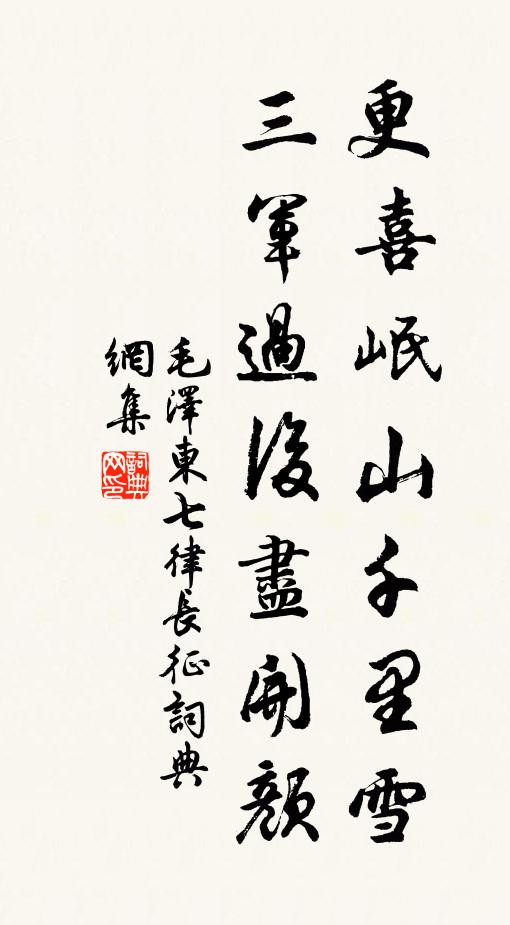 更喜岷山千里雪
三軍過後盡開顏
毛澤東七律長征詞典
網集
詞典
网印